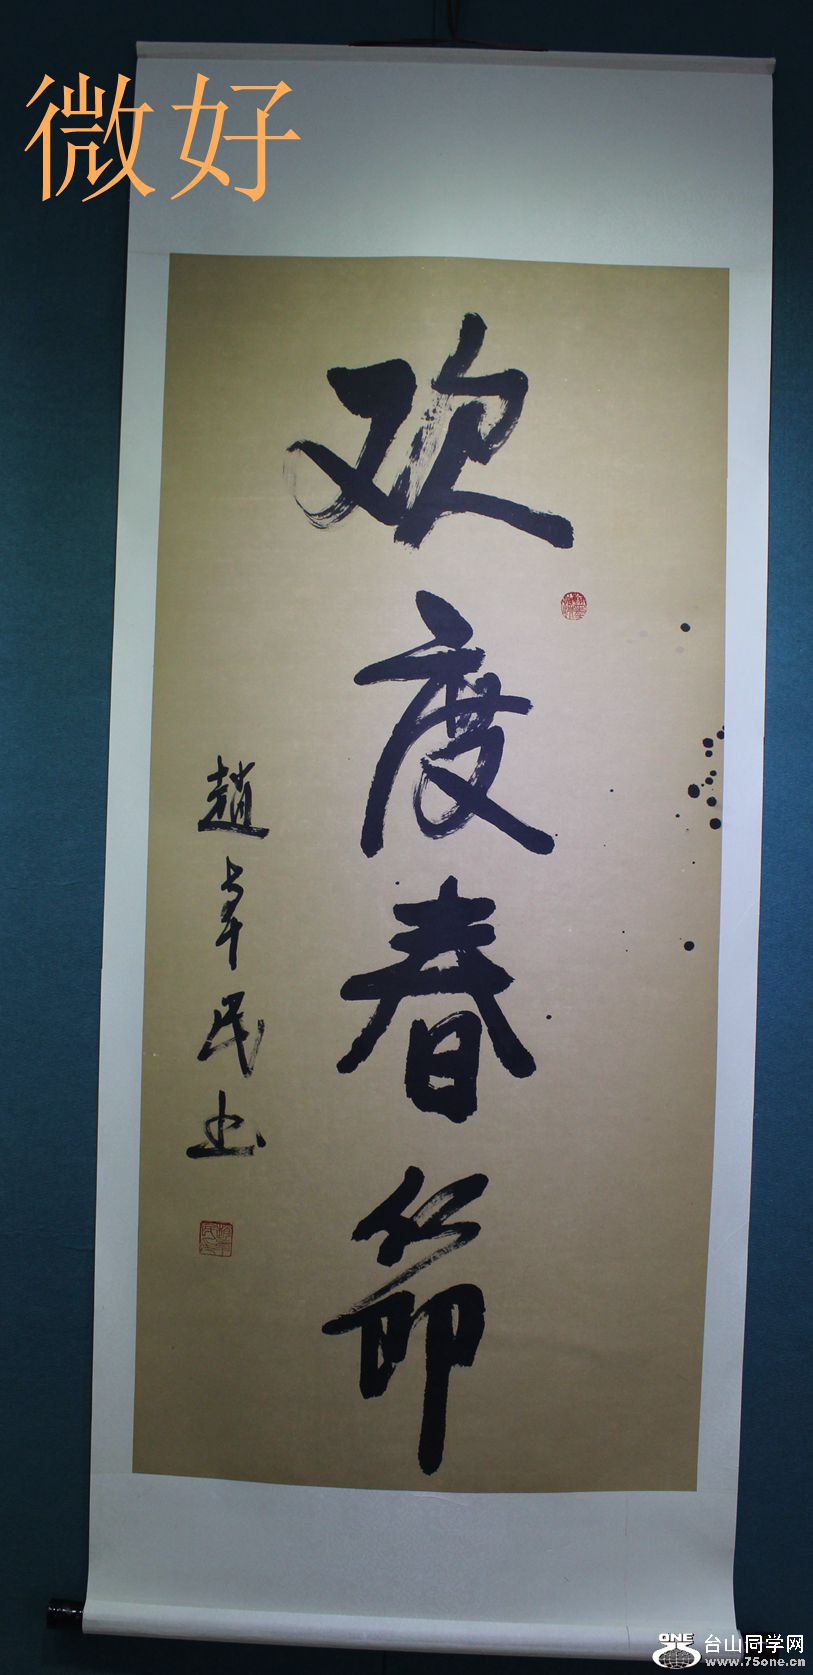 微好
欢度春節
趙卓民书
ONE 台山同学网
www.75one.cn